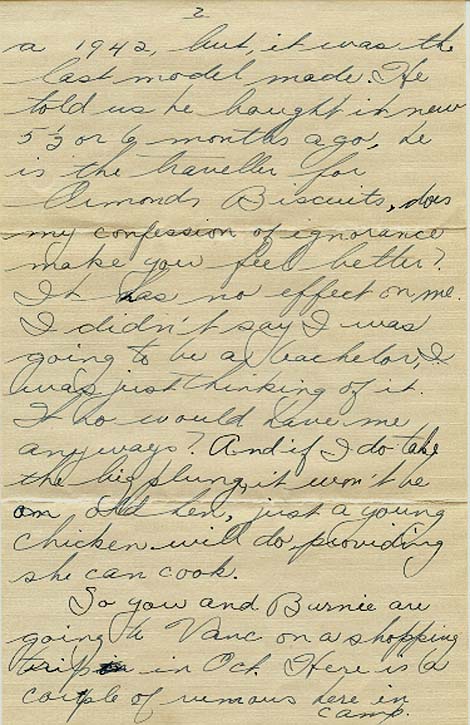 2
a 1942, but, it was the
last model made. He
told us he bought it new
5 1/2 or 6 months ago, he
is the traveller for
Ormonds Biscuits, does
my confession of ignorance
make you feel better?
It has no effect on me.
I didn't say I was
going to be a bachelor, I
was just thinking of it.
Who would have me
anyways? And if I do take
the big plung, it won't be
an old hen, just a young
chicken will do, providing
she can cook.
So you and Burnie are
going to Vanc on a shopping
trip in Oct. Here is a
couple of rumous here in
camp.